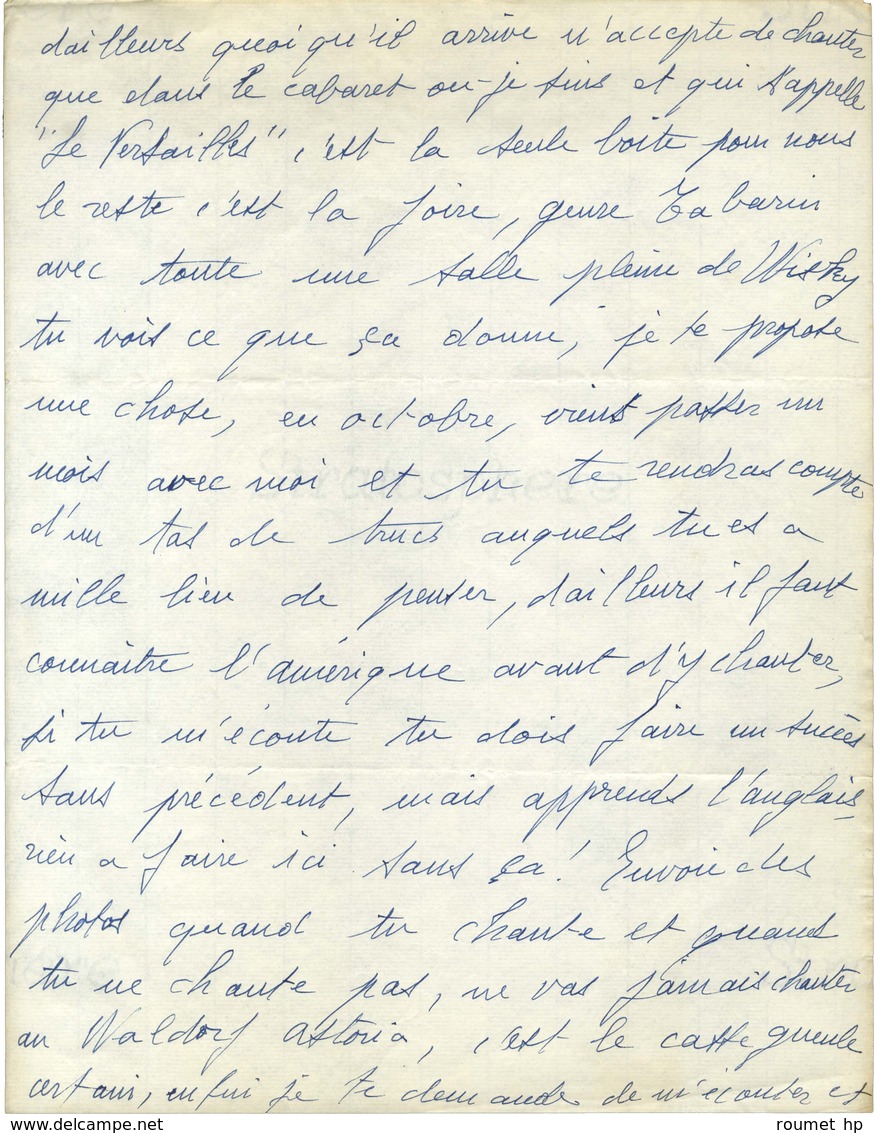 dailleurs quoi qu'il arrive n'accepte de chanter
que dans le cabaret ou je suis et qui s'appelle
"Le Versailles" c'est la seule boite pour nous
le reste c'est la foire, genre Tabarin
avec toute une salle pleine de Wisky
tu vois ce que ça donne, je te propose
une chose, en octobre, viens passer un
mois avec moi et tu te rendras compte
d'un tas de trucs auquels tu es a
mille lieu de penser, dailleurs il faut
connaitre l'amérique avant d'y chanter,
si tu m'écoute tu dois faire un succès
sans précédent, mais apprends l'anglais
rien a faire ici sans ça! Envoie des
photos quand tu chante et quand
tu ne chante pas, ne vas jamais chanter
au Waldorf astoria, c'est le casse gueule
certain, enfin je te demande de m'écouter et
roumet hp